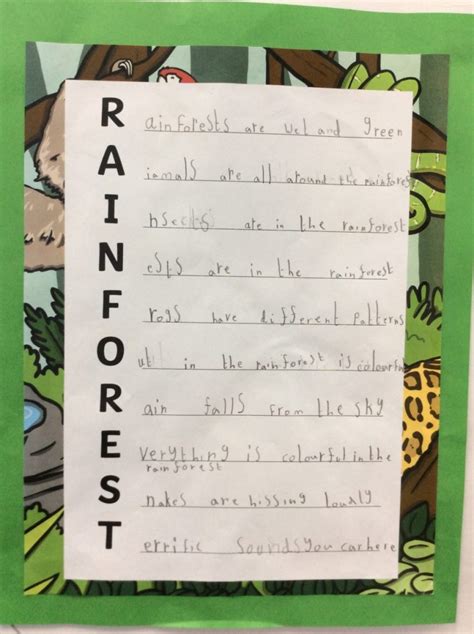 R ainforests are wet and green
A inmals are all around the rainforest
I nsects are in the rainforest
N ests are in the rainforest
F rogs have different Patterns
O ut in the rainforest is colourful
R ain falls from the sky
E verything is colourful in the
rainforest
S nakes are hissing loudly
T errific Sounds you can here